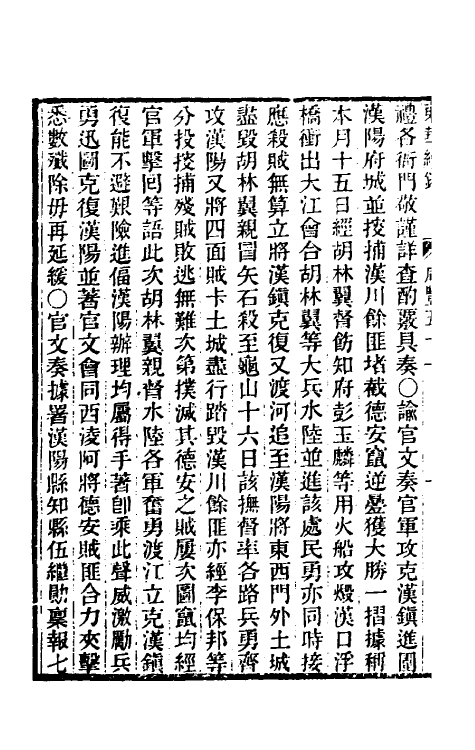 禮各衙門敬謹詳查酌覈具奏○諭官文奏官軍攻克漢鎮進圍
漢陽府城並投捕漢川餘匪堵截德安竄逆疊獲大勝一摺據稱
本月十五日經胡林翼督飭知府彭玉麟等用火船攻燬漢口浮
橋衝出大江會合胡林翼等大兵水陸並進該處民勇亦同時接
應殺賊無算立將漢鎮克復又渡河追至漢陽將東西門外土城
盡毀胡林翼親冒矢石殺至龜山十六日該撫督率各路兵勇齊
攻漢陽又將四面賊卡土城盡行踏毀漢川餘匪亦經李保邦等
分投搜捕殘賊敗逃無難次第撲滅其德安之賊屢次圖竄均經
官軍擊回等語此次胡林翼親督水陸各軍奮勇渡江立克漢鎮
復能不避艱險進偪漢陽辦理均屬得手著卽乘此聲威激勵兵
勇迅圖克復漢陽並著官文會同西淩阿將德安賊匪合力夾擊
悉數殲除毋再延緩○官文奏據署漢陽縣知縣伍繼勛稟報七